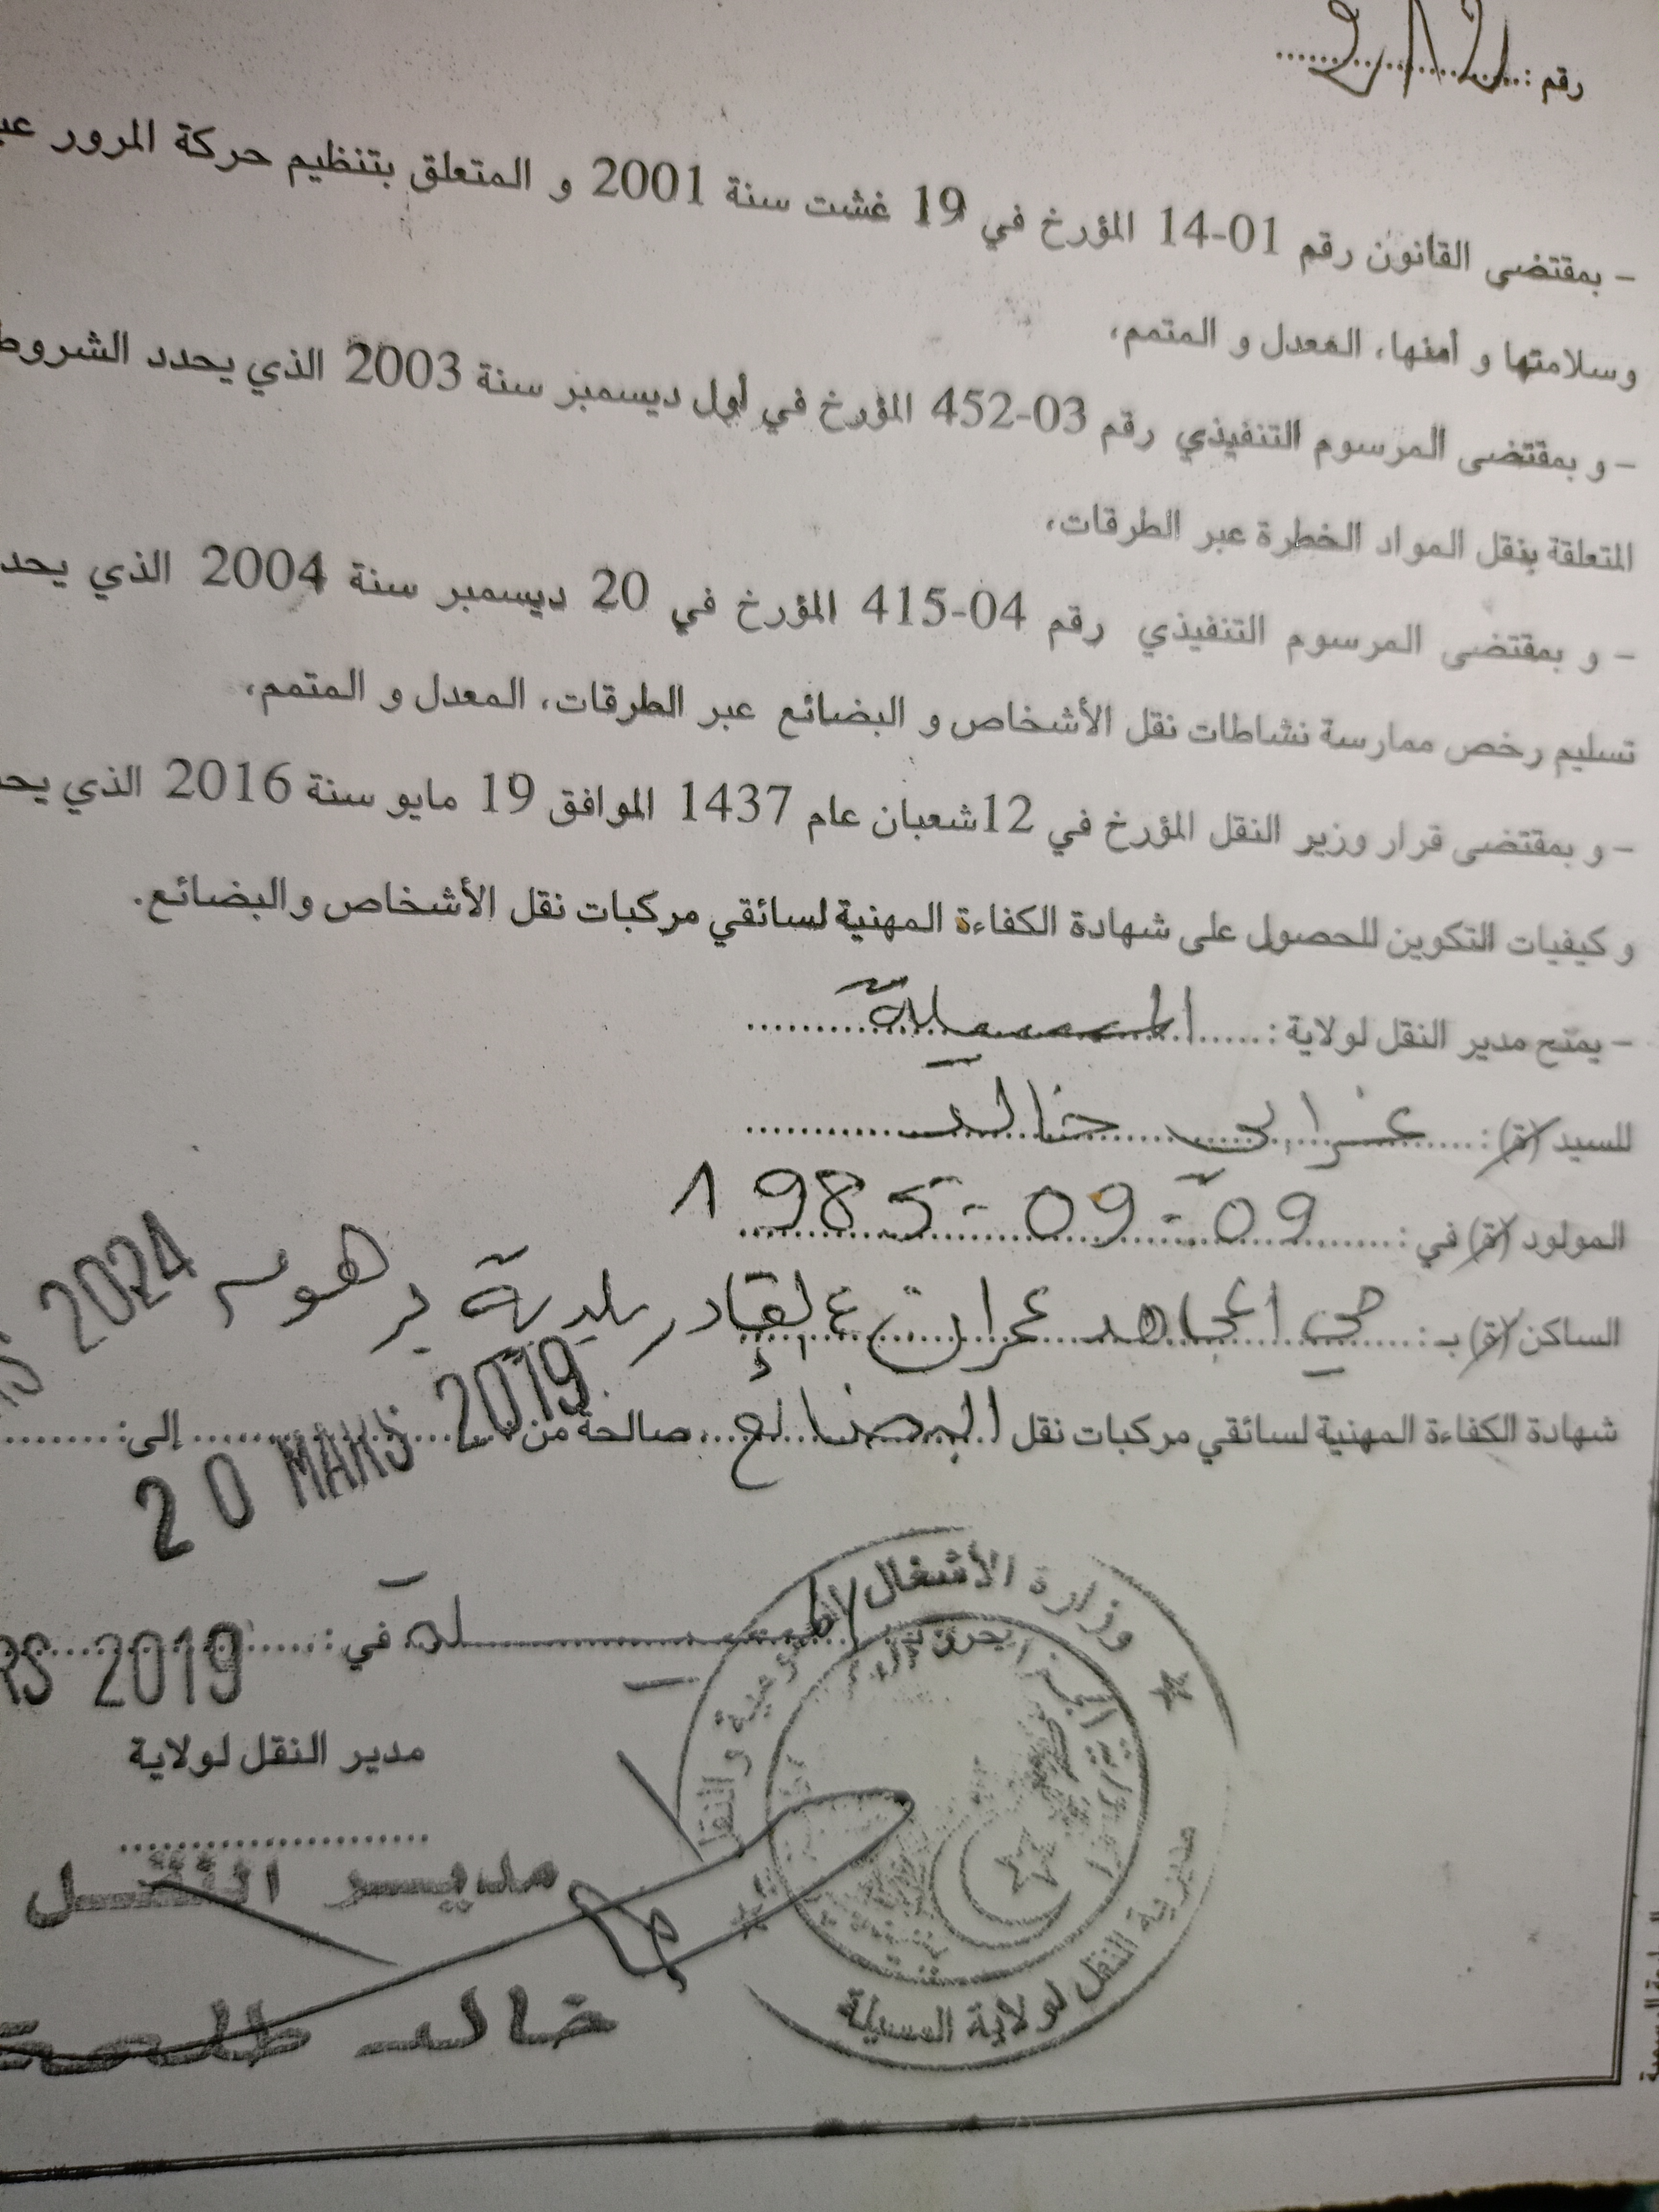 رقم :
– بمقتضى القانون رقم 01-14 المؤرخ في 19 غشت سنة 2001 و المتعلق بتنظيم حركة المرور
وسلامتها و أمنها، المعدل و المتمم،
– و بمقتضى المرسوم التنفيذي رقم 03-452 المؤرخ في أول ديسمبر سنة 2003 الذي يحدد الشروط
المتعلقة بنقل المواد الخطرة عبر الطرقات،
– و بمقتضى المرسوم التنفيذي رقم 04-415 المؤرخ في 20 ديسمبر سنة 2004 الذي
تسليم رخص ممارسة نشاطات نقل الأشخاص و البضائع عبر الطرقات، المعدل و المتمم،
– و بمقتضى قرار وزير النقل المؤرخ في 12شعبان عام 1437 الموافق 19 مايو سنة 2016 الذي
و كيفيات التكوين للحصول على شهادة الكفاءة المهنية لسائقي مركبات نقل الأشخاص والبضائع.
– يمنح مدير النقل لولاية : المسيلة
للسيد (ة) : خالد
المولود (ة) في : 09-09-1985
الساكن (ة) بـ : حي المجاهد عمران ع القادر بلدية برهوم
شهادة الكفاءة المهنية لسائقي مركبات نقل البضائع صالحة من 20 MARS 2019 إلى : 2024
المسيلة في : 2019
مدير النقل لولاية
مديـر النقـل
خالد
وزارة الأشغال العمومية و النقل
مديرية النقل لولاية المسيلة